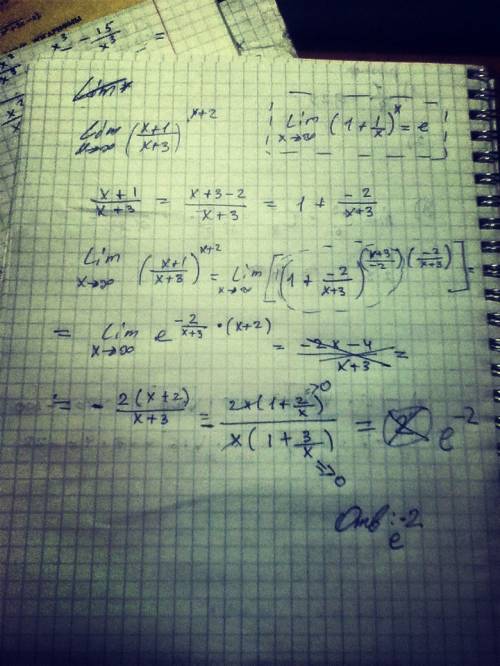 x³ - 15/x³ =
Lim
Lim x→∞ ((x+1)/(x+3))^(x+2)
Lim x→∞ (1 + 1/x)^x = e
(x+1)/(x+3) = (x+3-2)/(x+3) = 1 + (-2)/(x+3)
Lim x→∞ ((x+1)/(x+3))^(x+2) = Lim x→∞ [((1 + (-2)/(x+3))^((x+3)/(-2)))^((-2)/(x+3))] =
= Lim x→∞ e^(-2/(x+3) · (x+2)) = (-2x-4)/(x+3) =
= - 2(x+2)/(x+3) = - 2x(1+2/x)→0 / x(1+3/x)→0 = 2 e^-2
Отв: e^-2